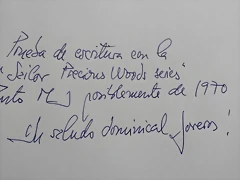 Prueba de escritura con la
"Sailor Precious Woods series"
Punto M, posiblemente de 1970
Un saludo dominical, foreros!